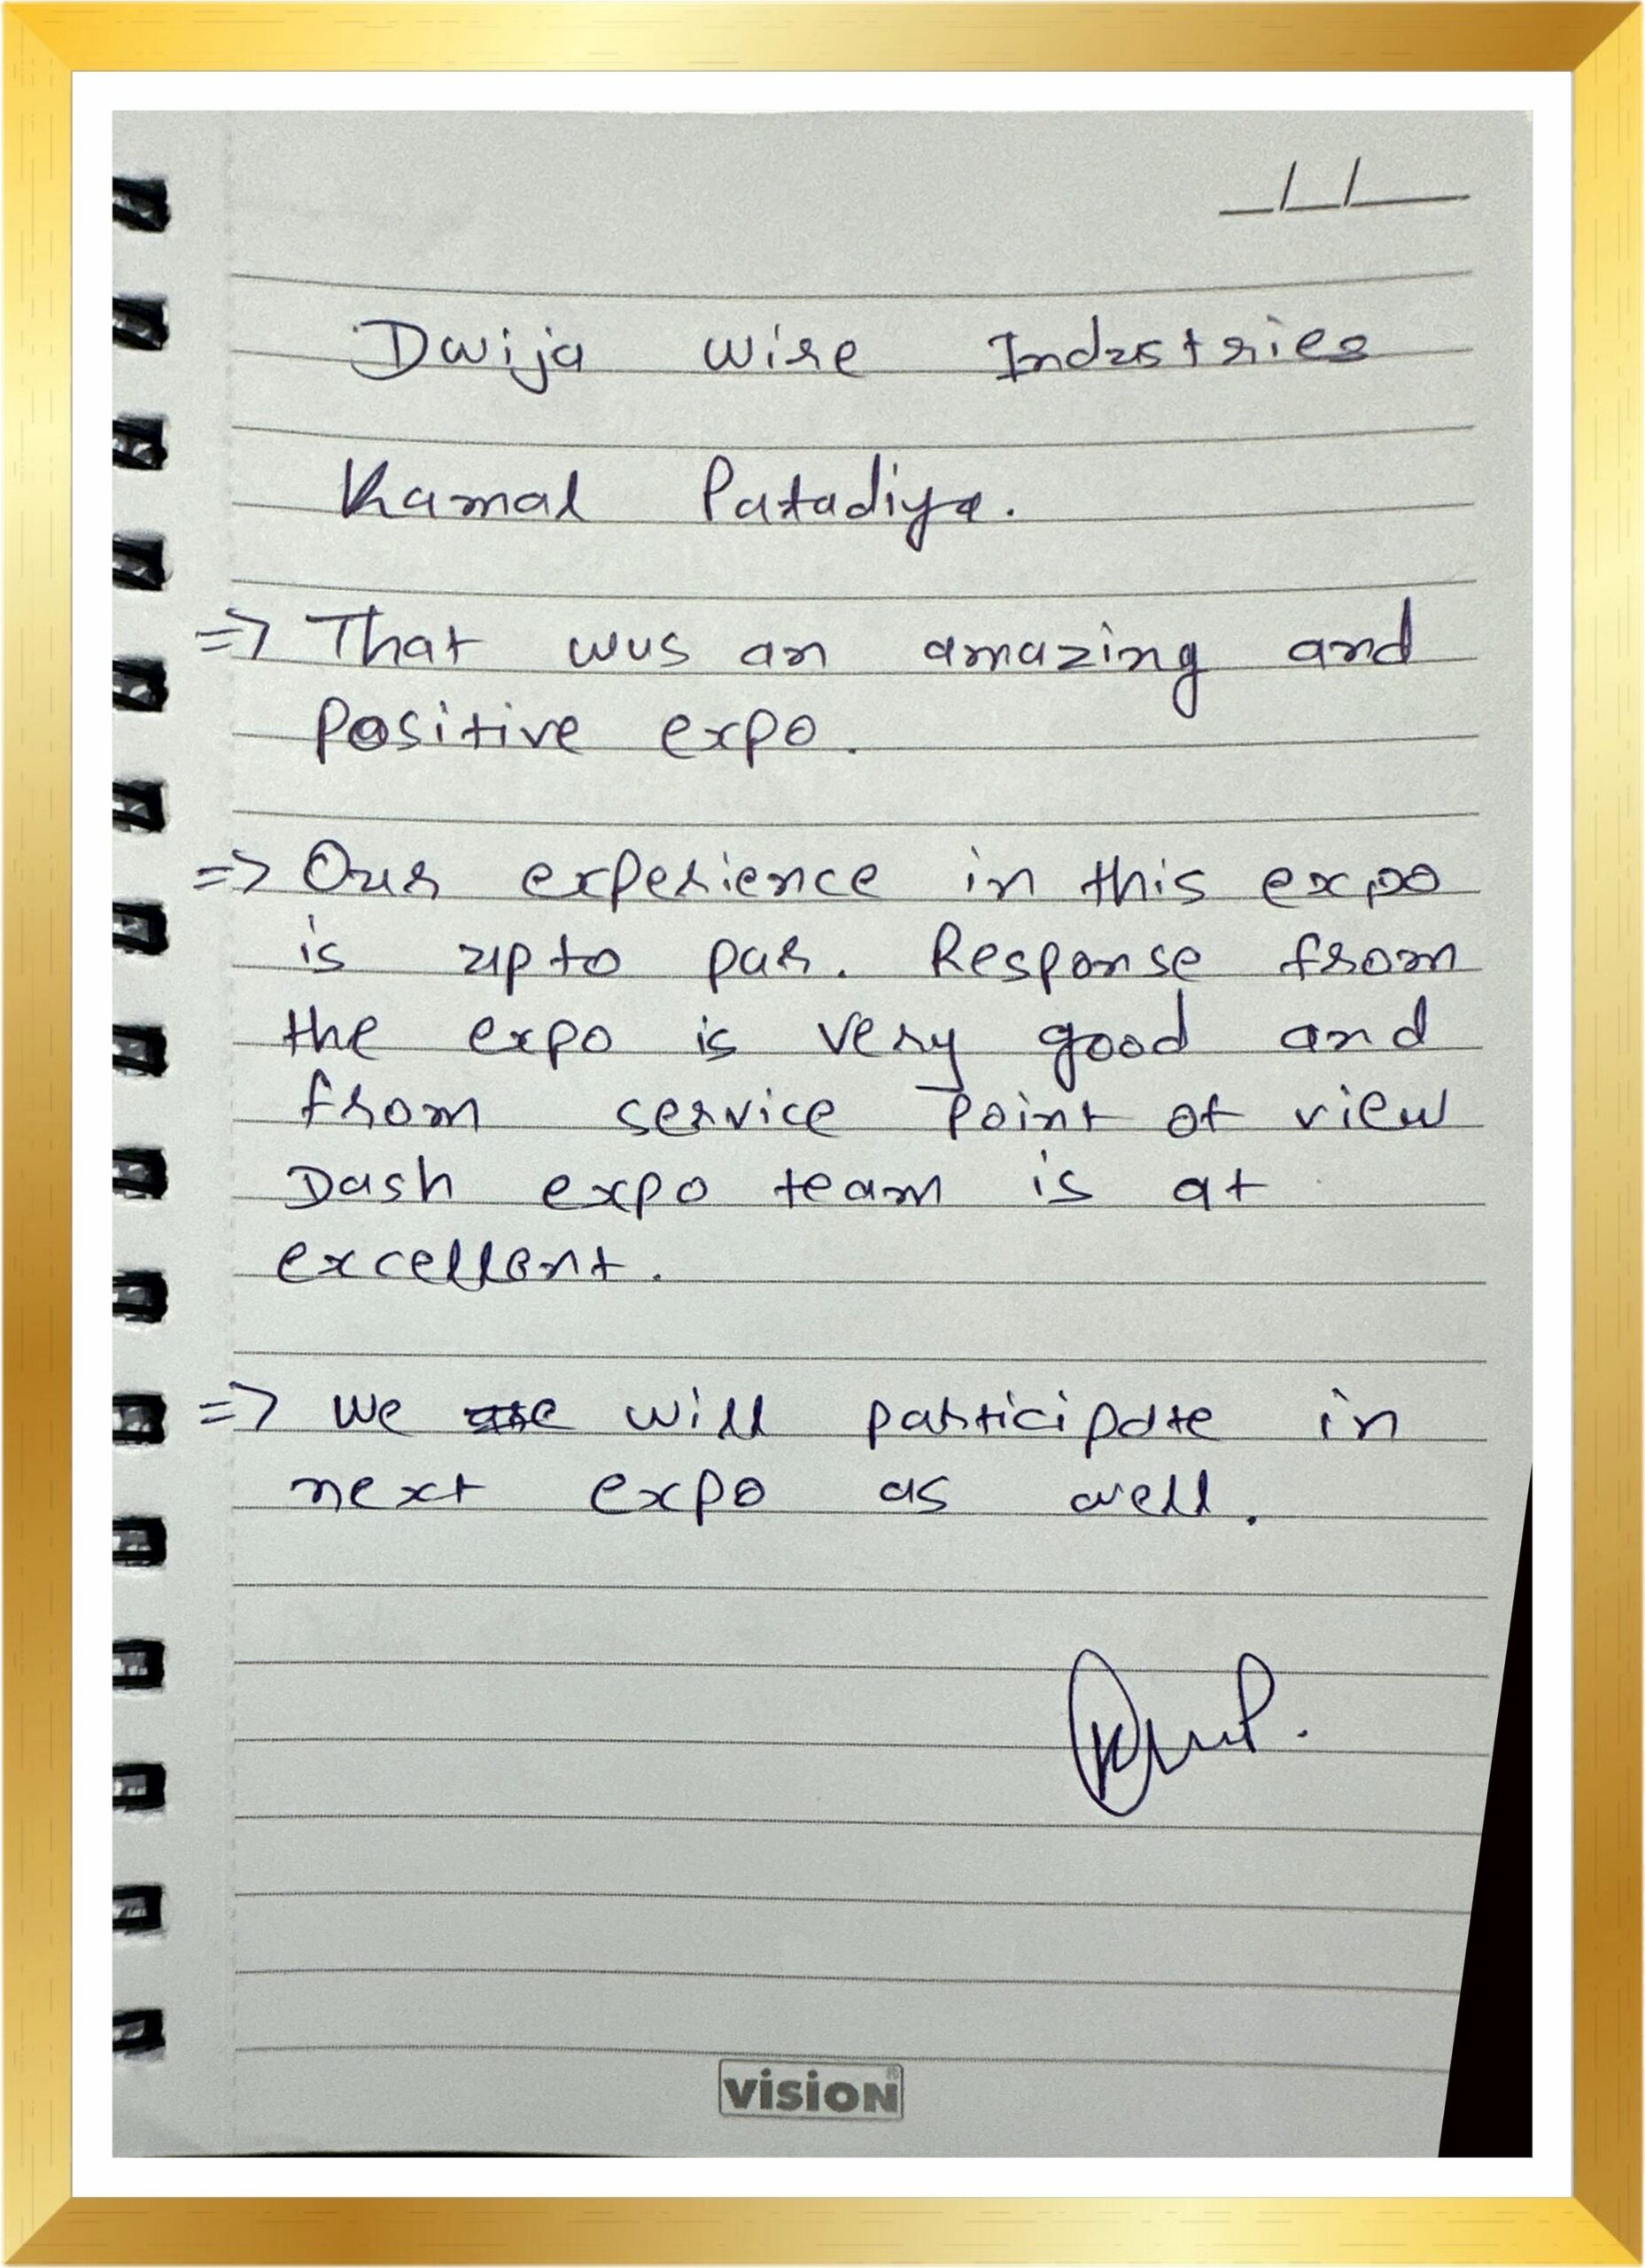 __/__/____
Dwija wire Industries
Kamal Patadiya.
=> That was an amazing and
positive expo.
=> Our experience in this expo
is upto par. Response from
the expo is very good and
from service point of view
Dash expo team is at
excellent.
=> we will participate in
next expo as well.
vision®